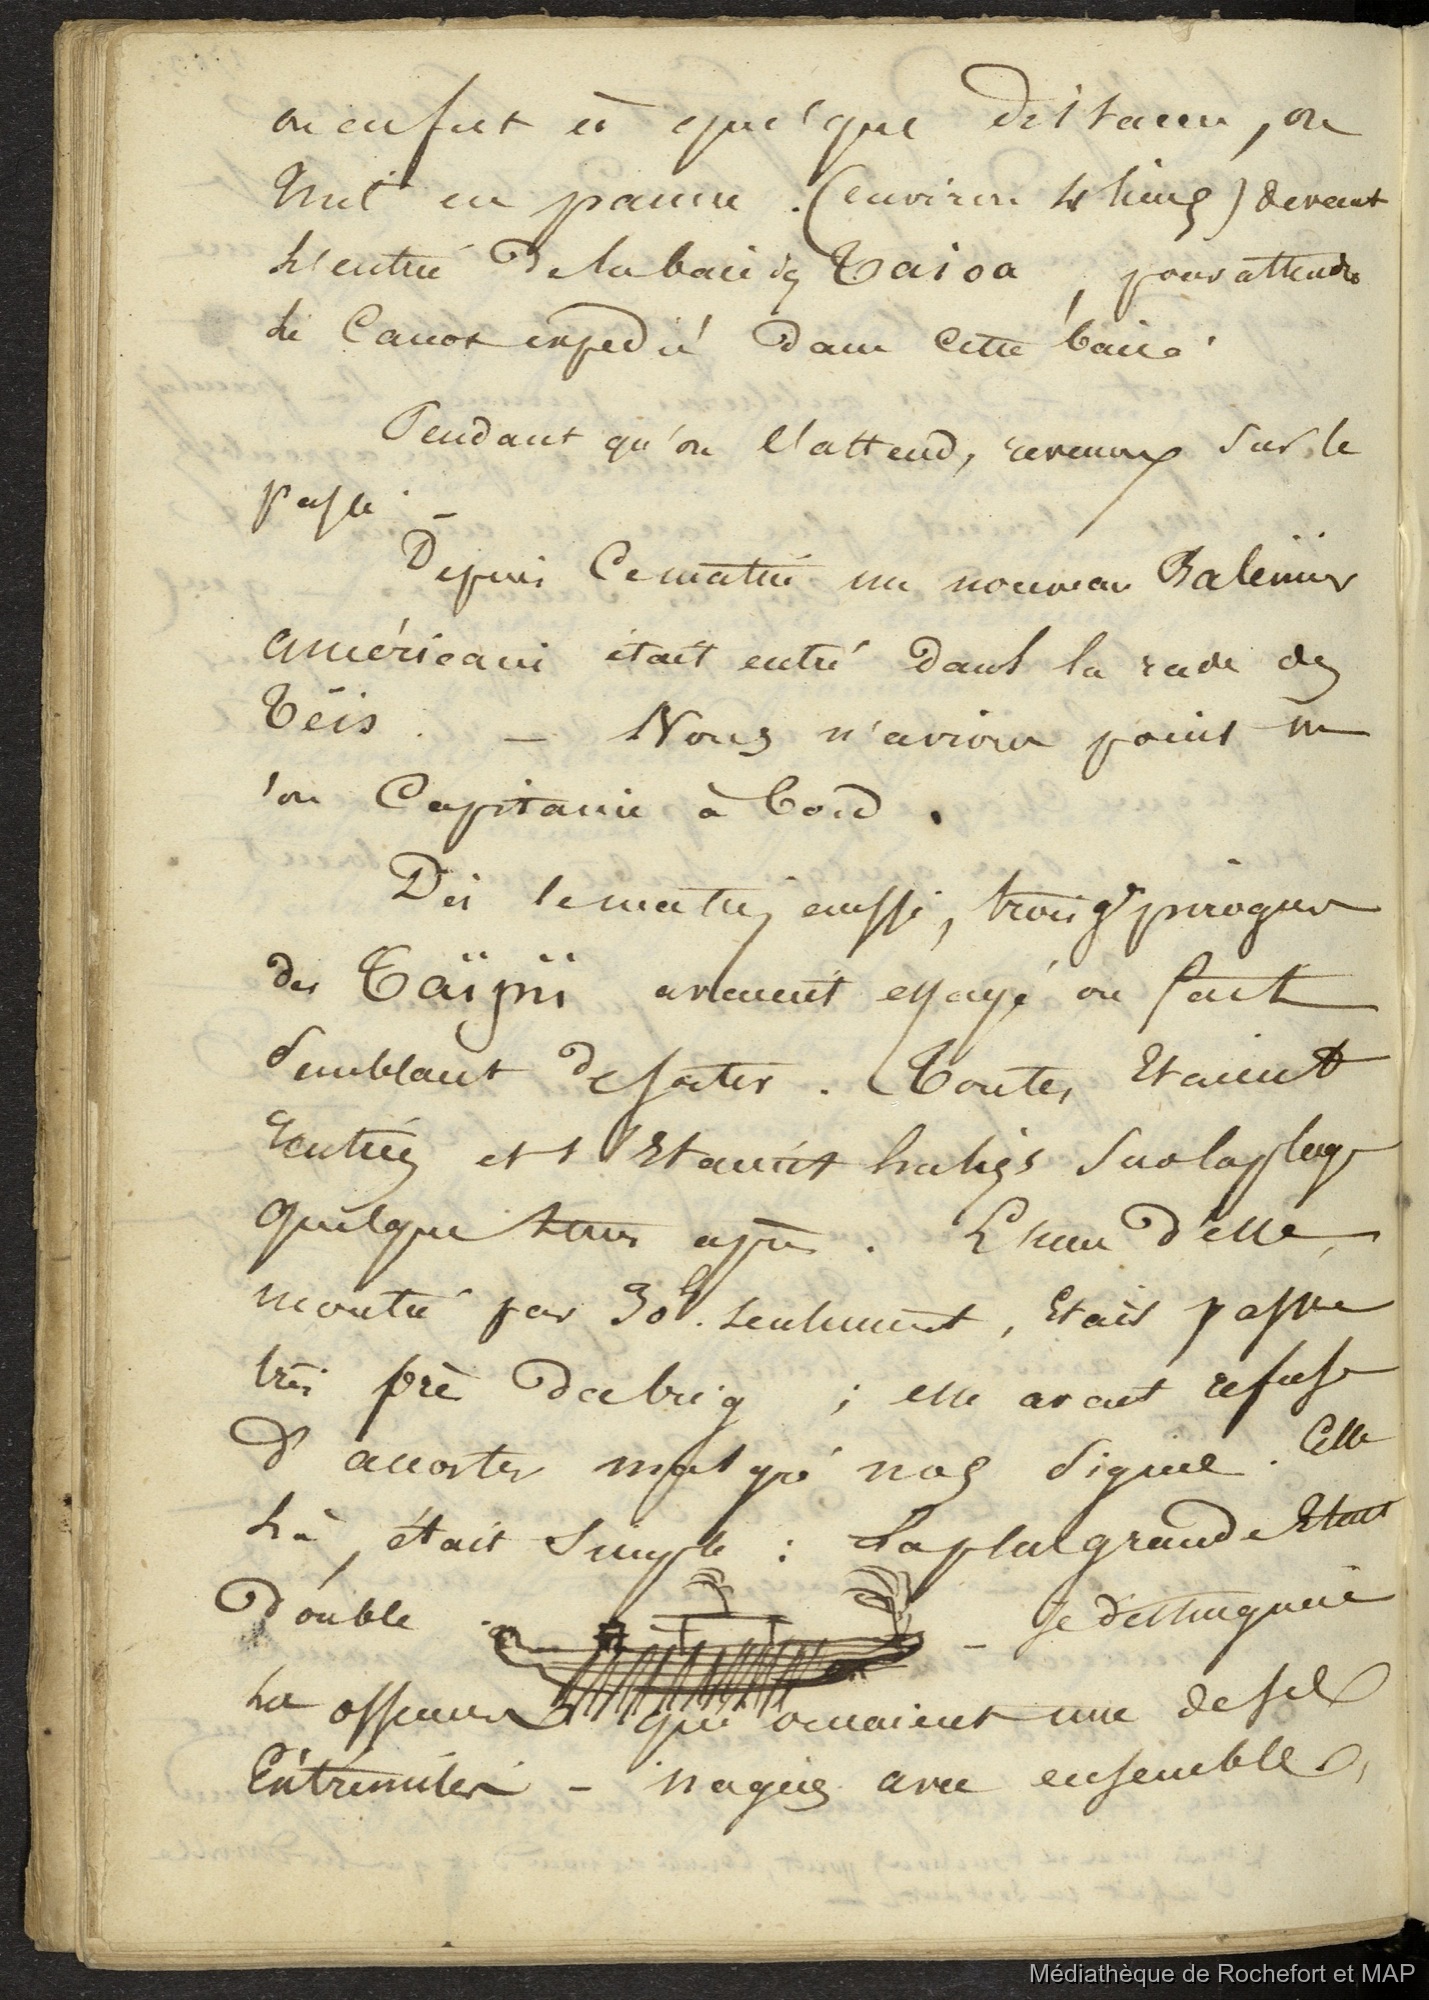 on en fut à quelque distance, on
mit en panne. (environ 4 lieues) devant
L'entrée de la baie de Taioa, pour attendre
Le Canot expedié dans cette baie.
Pendant qu'on l'attend, revenons sur le
passé. —
Depuis Ce matin un nouveau Baleinier
américain était entré dans la rade des
Teïs. — Nous n'avions point vu
son Capitaine à bord.
Dès le matin aussi, trois gdes pirogues
des Taïpii avaient essayé ou fait
Semblant de sortir. Toutes Etaient
Rentrées et s'Etaient halées Sur la plage
quelque tems après. L'une d'elles,
montée par 30 h. seulement, Etait passée
très près du brig; elle avait refusé
d'accoster malgré nos signes. Celle
Là, était Simple: La plus grande Etait
double — Je distinguai
Les ossemens qui ornaient une de ses
Extrémités — nagées avec ensemble,
Médiathèque de Rochefort et MAP